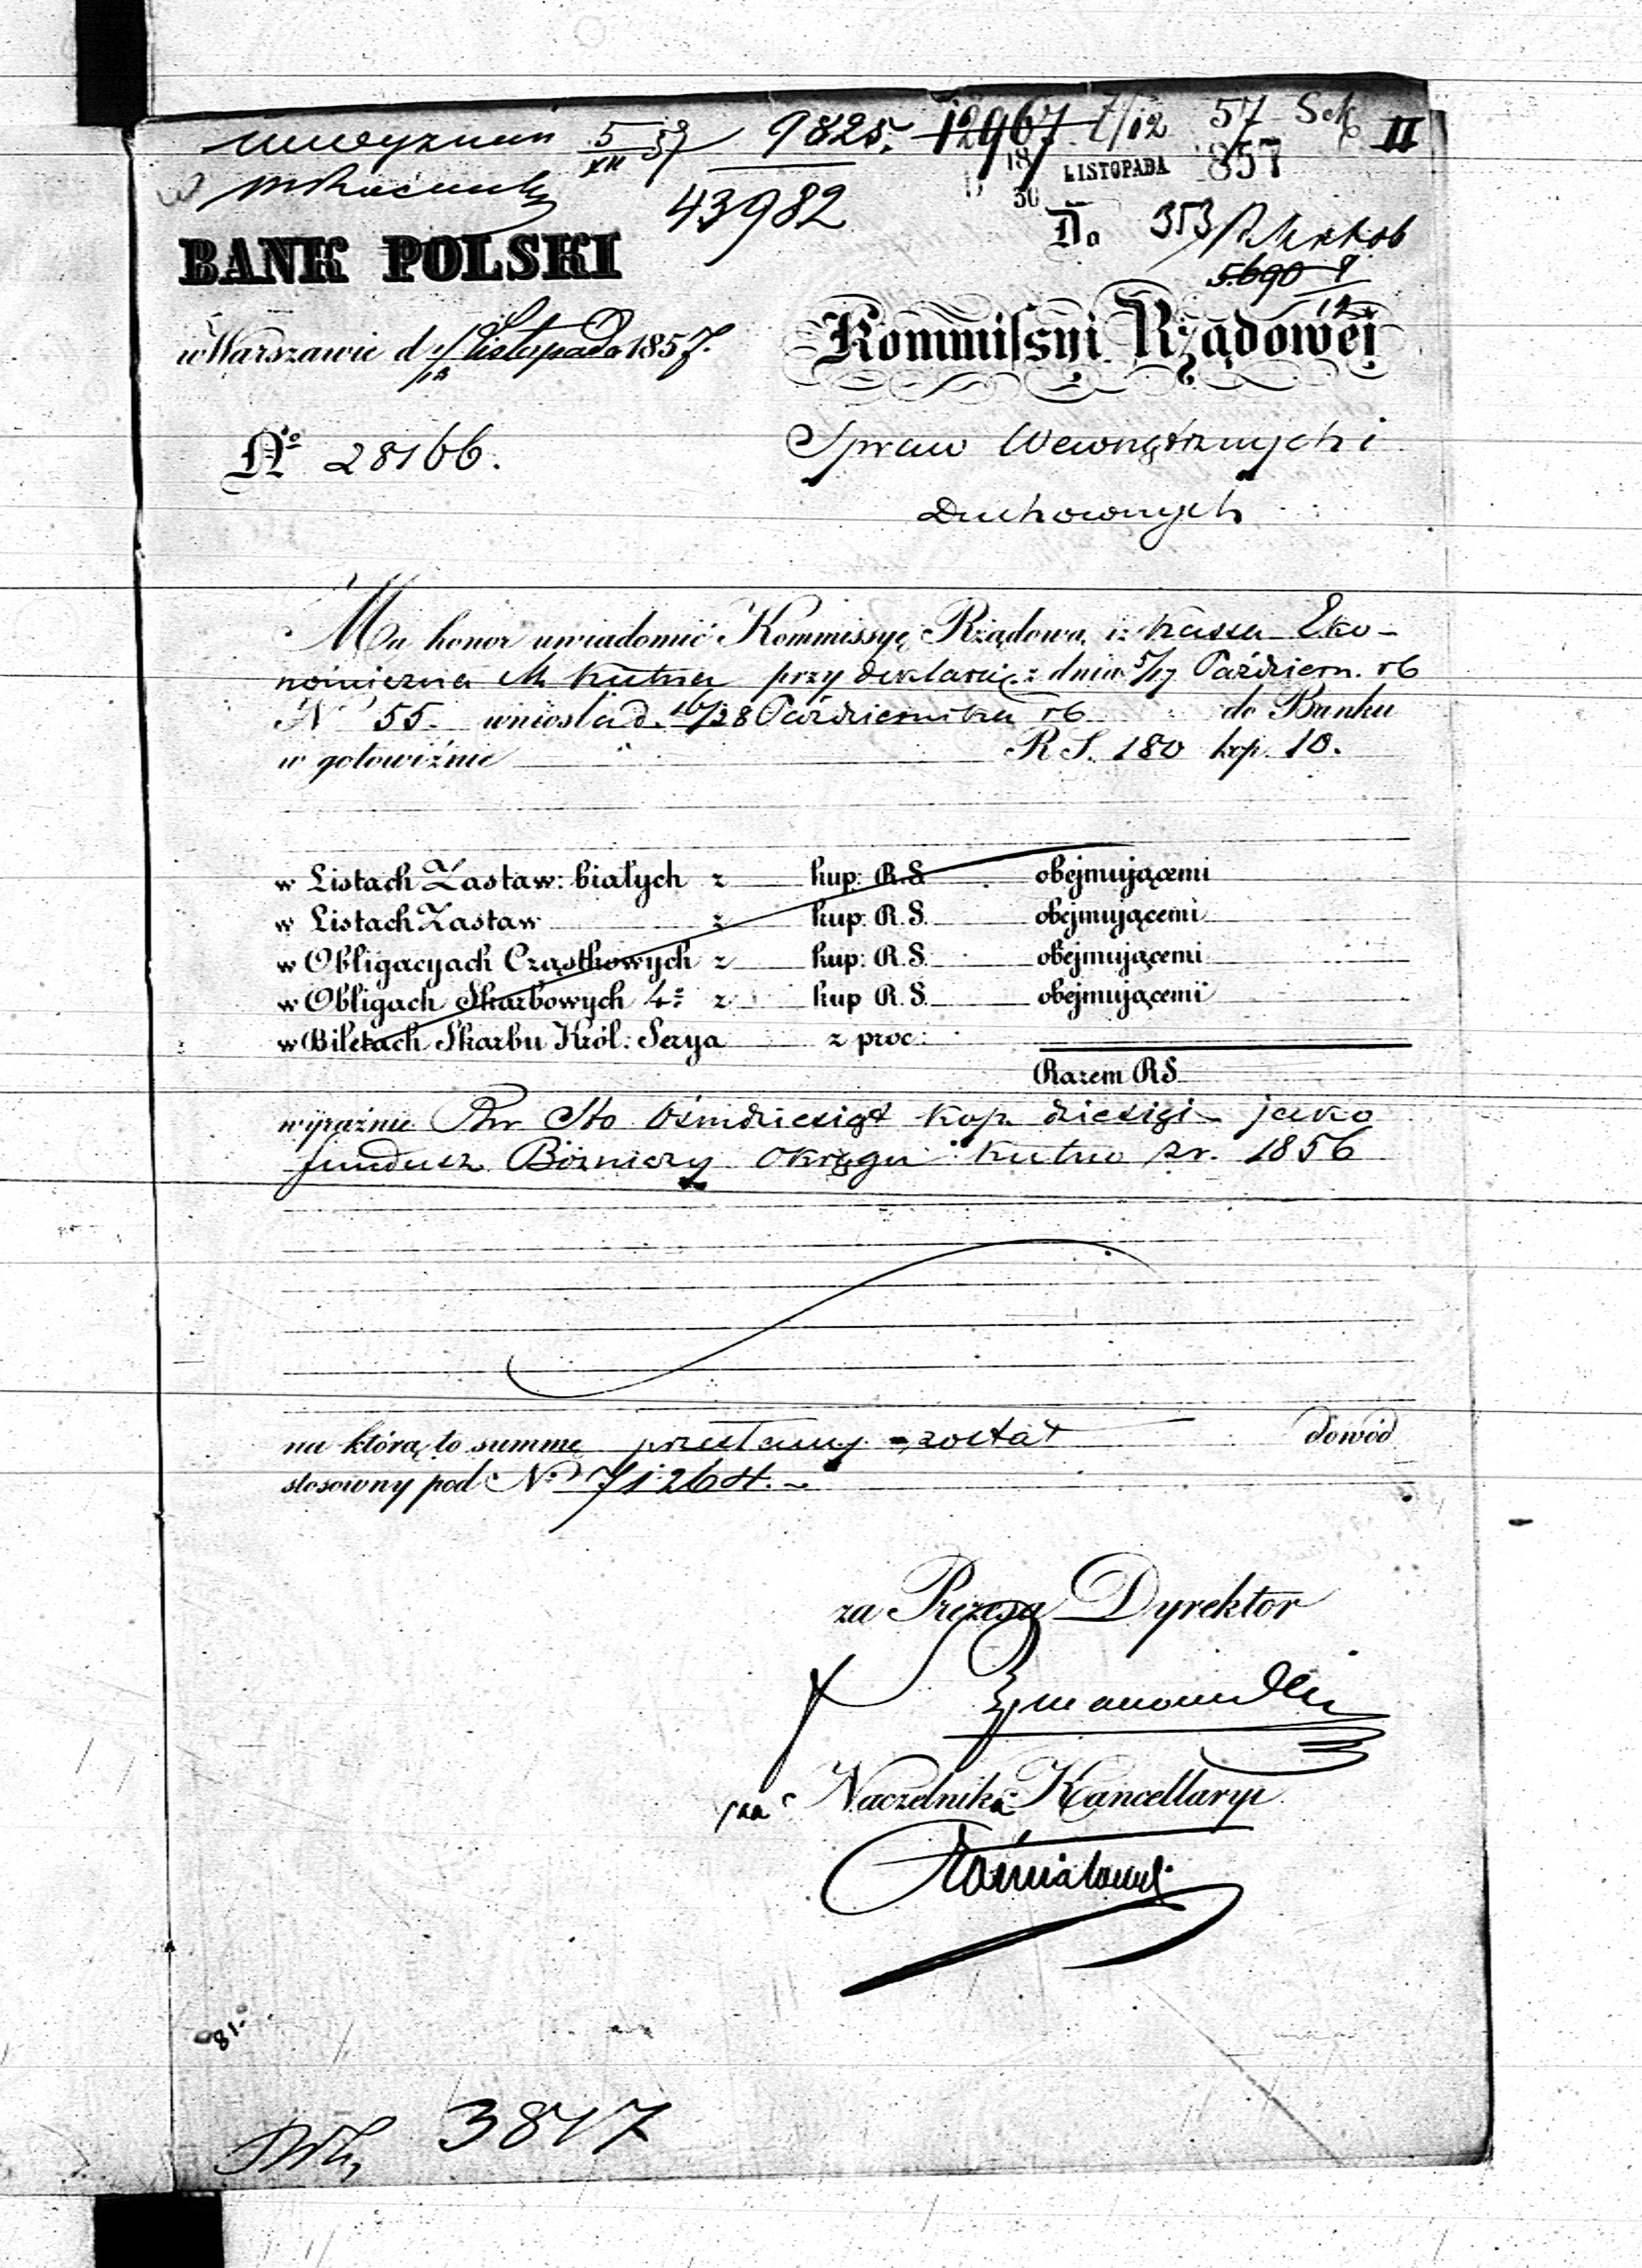 5/XII 57 9825. 12967 7/12 57 Sek II
18/30 LISTOPADA 857
43982
Do 353
5690 9/12
BANK POLSKI
Kommissyi Rządowéj
w Warszawie d. Listopada 1857.
Spraw Wewnętrznych i
No 28166.
Duchownych
Ma honor uwiadomić Kommissyę Rządową, iż Kassa Eko-
nomiczna M Kutna przy deklaracji z dnia 5/17 Październ. rb
No 55. wniosła d. 16/28 Października rb do Banku
w gotowiźnie RS. 180 kop. 10.
w Listach Zastaw: białych z kup: R.S. obejmującemi
w Listach Zastaw z kup: R.S. obejmującemi
w Obligacyach Cząstkowych z kup: R.S. obejmującemi
w Obligach Skarbowych 4% z kup R.S. obejmującemi
w Biletach Skarbu Król: Serya z proc:
Razem RS
wyraźnie Rsr Sto Ośmdziesiąt kop. dziesięć jako
fundusz Bóżniczy Okręgu Kutno zr. 1856
na którą to summę przesłany został dowód
stosowny pod No 71264.
za Prezesa Dyrektor
za Naczelnika Kancellaryi
81
3847